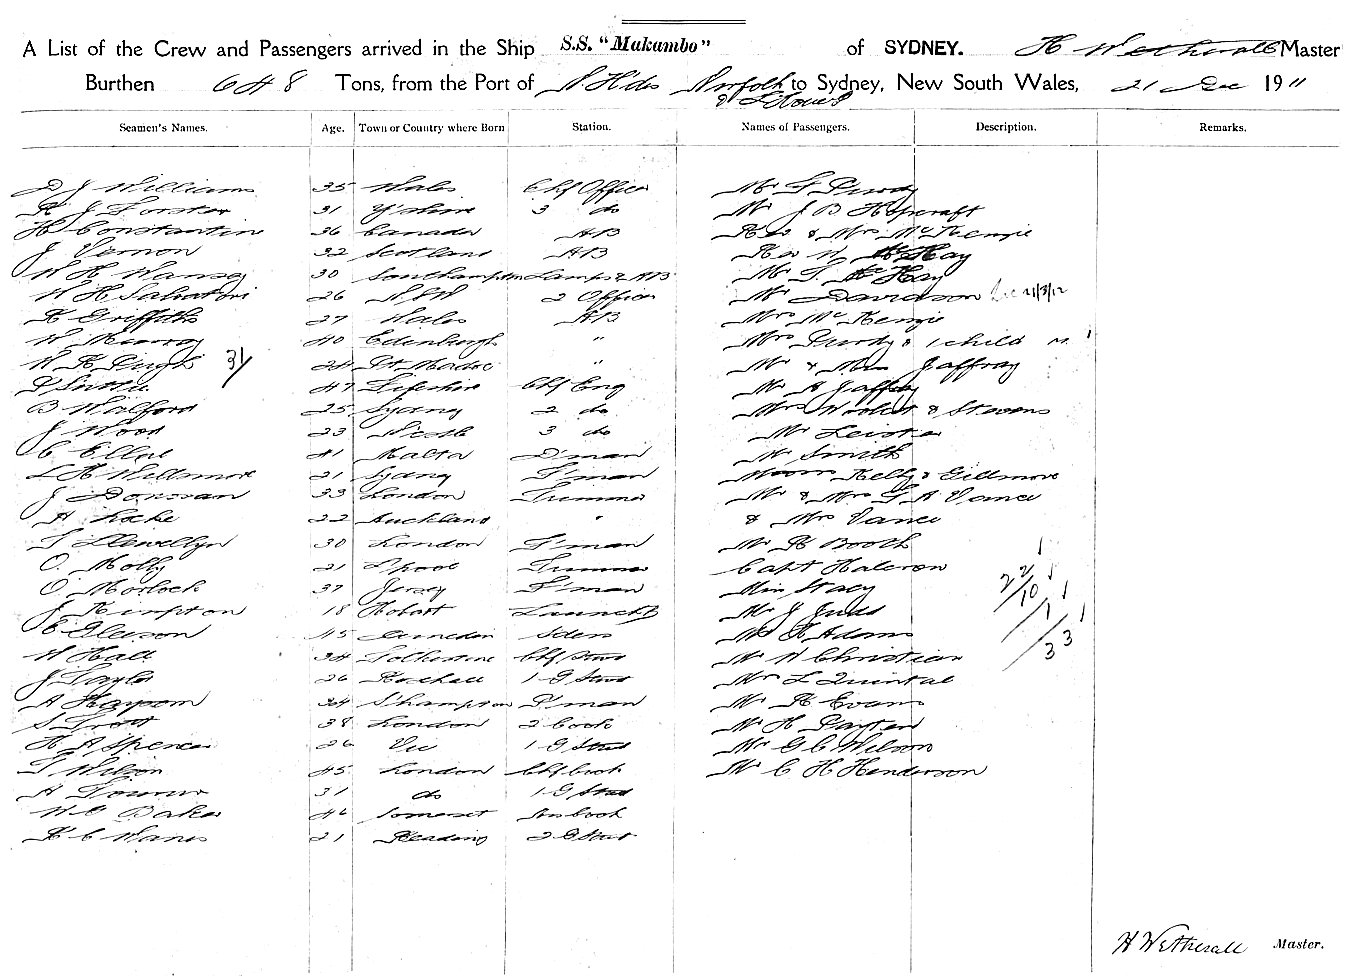 A List of the Crew and Passengers arrived in the Ship S.S. "Makambo" of SYDNEY. H Wetherall Master
Burthen 648 Tons, from the Port of N. H'des Norfolk to Sydney, New South Wales, 21 Dec 1911
& L Howe I
Seamen's Names. Age. Town or Country where Born Station. Names of Passengers. Description. Remarks.
D J Williams 35 Wales Chf Officer Mr F Purdy
R J Forster 31 Y'shire 3 do Mr J B Hopcraft
H Constantin 36 Canada AB Rev & Mrs McKenzie
J Vernon 32 Scotland AB Rev W Hay
W H Wansey 30 Southampton Lamps & AB Mr T Hay
W H Salvatori 26 NSW 2 Officer Mr Davidson
R Griffiths 27 Wales AB Mrs McKenzie
W Murray 40 Edinburgh " Mrs Purdy & 1 child
W R Pugh 31/ 24 Pt Madoc " Mr & Miss Jaffray
P Smith 47 Fifeshire Chf Eng Mr A Jaffray
B Walford 25 Sydney 2 do Mrs & Stevens
J Wood 23 3 do Mr
C 41 Malta D'man Mr Smith
L H Willsmore 21 Sydney F'man Kelly & Gillmore
J Donovan 33 London Trimmer Mr & Mrs T A Vance
A Locke 22 Auckland " & Mrs Vance
T Llewellyn 30 London F'man Mr R Booth
O Molly 21 L'pool Trimmer Capt Halcron
O Morlock 37 Jersey F'man Miss Stacy
J Kimpton 18 Hobart Launch B Mr J Judd
E Gleeson 45 Dunedin Mr F Adams
W Hall 34 Folkestone Chf Stwd Mr W Christian
J Taylor 26 1 G Stwd Mr L Quintal
A 34 S'hampton P'man Mr R Evans
S Trott 38 London 2 Cook Mr H Payten
H A Spencer 26 Vic 1 G Stwd Mr G C Wilson
T Wilson 45 London Chf Cook Mr C H Henderson
A 31 do 1 G Stwd
W G Baker 46 Somerset Cook
R C 21 Reading 2 G Stwd
22
10
1
33
H Wetherall Master.